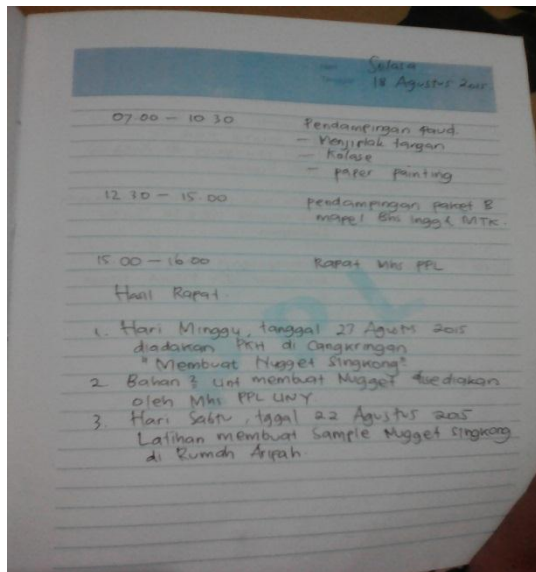 Selasa
18 Agustus 2015
07.00 - 10.30 Pendampingan Paud.
- Menjiplak tangan
- Kolase
- paper painting
12.30 - 15.00 pendampingan paket B
mapel Bhs inggr & MTK.
15.00 - 16.00 Rapat Mhs PPL
Hasil Rapat.
1. Hari Minggu, tanggal 27 Agusts 2015
diadakan PKH di Cangkringan
"Membuat Nugget Singkong"
2. Bahan2 unt membuat Nugget disediakan
oleh Mhs PPL UNY.
3. Hari Sabtu, tggal 22 Agustus 2015
Latihan membuat Sample Nugget Singkong
di Rumah